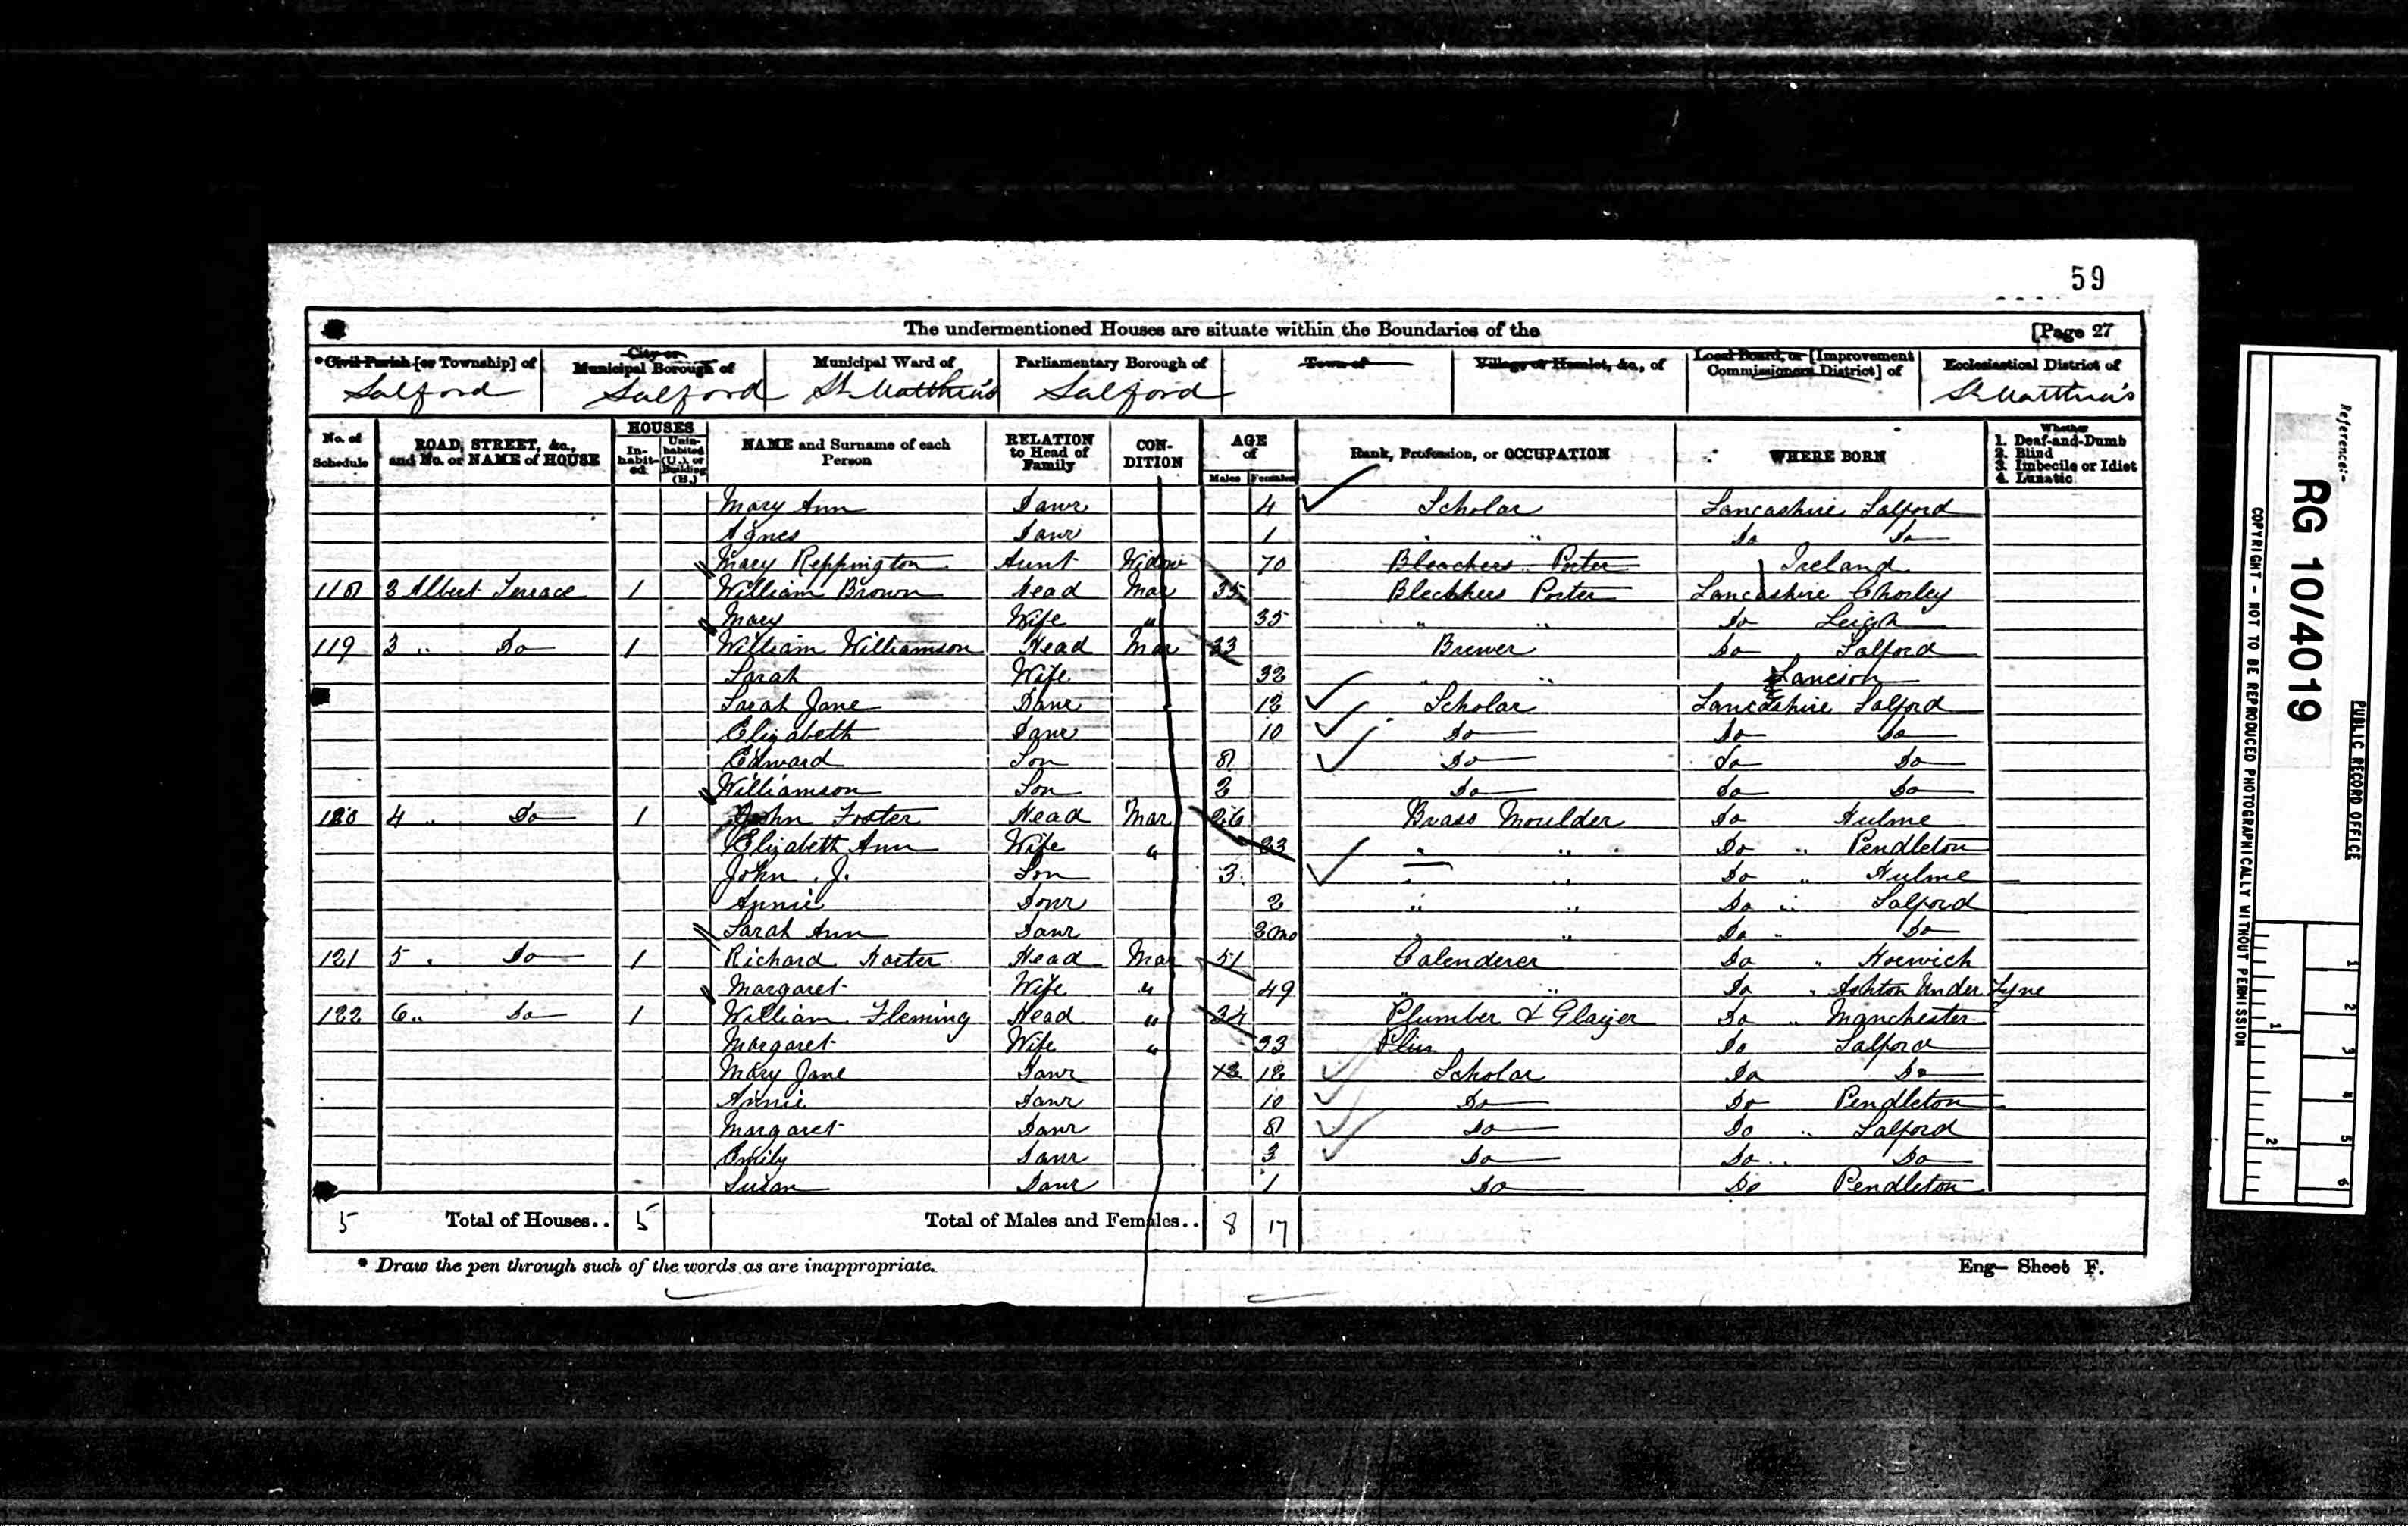 59
The undermentioned Houses are situate within the Boundaries of the [Page 27
*Civil Parish [or Township] of City or Municipal Borough of Municipal Ward of Parliamentary Borough of Town of Village or Hamlet, &c., of Local Board, or [Improvement Commissioners District] of Ecclesiastical District of
Salford Salford St. Matthew's Salford St Matthew's
No. of Schedule ROAD, STREET, &c., and No. or NAME of HOUSE HOUSES In-habit-ed Unin-habited (U.), or Building (B.) NAME and Surname of each Person RELATION to Head of Family CON-DITION AGE of Males Females Rank, Profession, or OCCUPATION WHERE BORN Whether 1. Deaf-and-Dumb 2. Blind 3. Imbecile or Idiot 4. Lunatic
Mary Ann Daur 4 Scholar Lancashire Salford
Agnes Daur 1 " " Do Do
Mary Reppington Aunt Widow 70 Bleachers Porter Ireland
118 3 Albert Terrace 1 William Brown Head Mar 35 Bleachers Porter Lancashire Chorley
Mary Wife " 35 " " Do Leigh
119 3 " Do 1 William Williamson Head Mar 33 Brewer Do Salford
Sarah Wife 32 " "
Sarah Jane Daur 12 Scholar Lancashire Salford
Elizabeth Daur 10 Do Do Do
Edward Son 8 Do Do Do
Williamson Son 2 Do Do Do
120 4 " Do 1 John Foster Head Mar 26 Brass Moulder Do Hulme
Elizabeth Ann Wife " 23 " " Do " Pendleton
John . J. Son 3 " " Do " Hulme
Annie Daur 2 " " Do " Salford
Sarah Ann Daur 3 mo " " Do " Do
121 5 . Do 1 Richard Harter Head Mar 51 Calenderer Do " Horwich
Margaret Wife " 49 " " Do " Ashton Under Lyne
122 6 " Do 1 William Fleming Head " 34 Plumber & Glazier Do " Manchester
Margaret Wife " 33 Plum Do Salford
Mary Jane Daur 12 12 Scholar Do Do
Annie Daur 10 Do Do Pendleton
Margaret Daur 8 Do Do " Salford
Emily Daur 3 Do Do " Do
Susan Daur 1 Do Do Pendleton
5 Total of Houses.. 5 Total of Males and Females.. 8 17
* Draw the pen through such of the words as are inappropriate.
Eng— Sheet F.
Reference:-
RG 10/4019
PUBLIC RECORD OFFICE
COPYRIGHT - NOT TO BE REPRODUCED PHOTOGRAPHICALLY WITHOUT PERMISSION
1 2 3 4 5 6
1 2